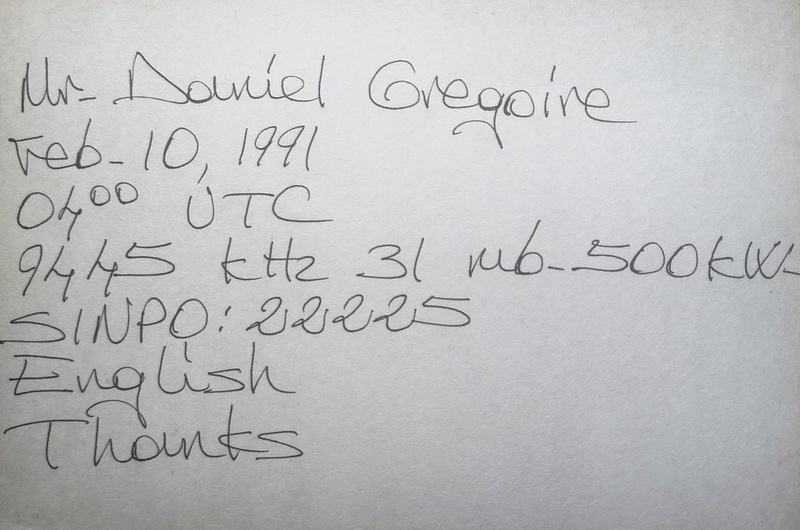 Mr. Daniel Gregoire
Feb. 10, 1991
04⁰⁰ UTC
9445 kHz 31 mb. 500kW.
SINPO: 22225
English
Thanks